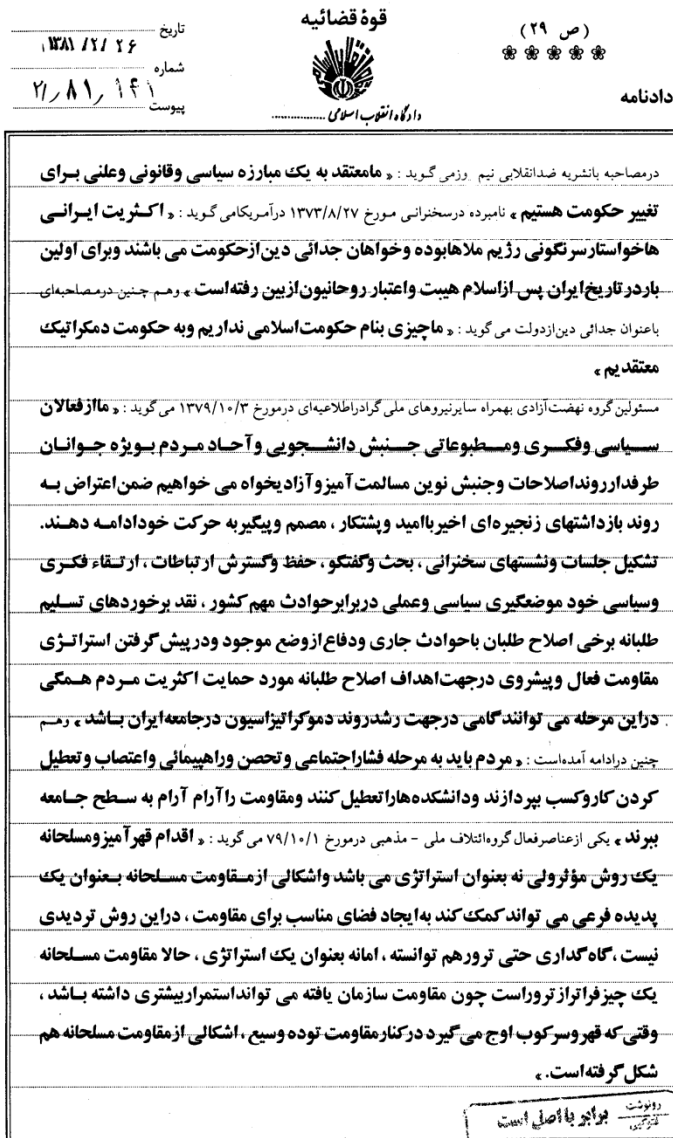 قوۀ قضائیه
(ص ۲۹)
❀ ❀ ❀ ❀ ❀
دادنامه
دادگاه انقلاب اسلامی
تاریخ ۱۳۸۱/۲/۲۶
شماره ۲۱٫۸۱٫۱۴۱
پیوست
درمصاحبه بانشریه ضدانقلابی نیم روزمی گوید : « مامعتقد به یك مبارزه سیاسی وقانونی وعلنی برای
تغییر حکومت هستیم » نامبرده درسخنرانی مورخ ۱۳۷۳/۸/۲۷ درآمریکامی گوید : « اکثریت ایرانی
هاخواستارسرنگونی رژیم ملاهابوده وخواهان جدائی دین ازحکومت می باشند وبرای اولین
باردرتاریخ ایران پس ازاسلام هیبت واعتبار روحانیون ازبین رفته است » وهم چنین درمصاحبه ای
باعنوان جدائی دین ازدولت می گوید : « ماچیزی بنام حکومت اسلامی نداریم وبه حکومت دمکراتیك
معتقدیم »
مسئولین گروه نهضت آزادی بهمراه سایرنیروهای ملی گرادراطلاعیه ای درمورخ ۱۳۷۹/۱۰/۳ می گوید : « ماازفعالان
سیاسی وفکری ومطبوعاتی جنبش دانشجویی وآحاد مردم بویژه جوانان
طرفدارروند اصلاحات وجنبش نوین مسالمت آمیزوآزادیخواه می خواهیم ضمن اعتراض به
روند بازداشتهای زنجیره ای اخیرباامید وپشتکار ، مصمم وپیگیربه حرکت خودادامه دهند.
تشکیل جلسات ونشستهای سخنرانی ، بحث وگفتگو ، حفظ وگسترش ارتباطات ، ارتقاء فکری
وسیاسی خود موضعگیری سیاسی وعملی دربرابرحوادث مهم کشور ، نقد برخوردهای تسلیم
طلبانه برخی اصلاح طلبان باحوادث جاری ودفاع ازوضع موجود ودرپیش گرفتن استراتژی
مقاومت فعال وپیشروی درجهت اهداف اصلاح طلبانه مورد حمایت اکثریت مردم همگی
دراین مرحله می توانندگامی درجهت رشدروند دموکراتیزاسیون درجامعه ایران باشد » وهم
چنین درادامه آمده است : « مردم باید به مرحله فشاراجتماعی وتحصن وراهپیمائی واعتصاب وتعطیل
کردن کاروکسب بپردازند ودانشکده هاراتعطیل کنند ومقاومت راآرام آرام به سطح جامعه
ببرند » یکی ازعناصرفعال گروه ائتلاف ملی - مذهبی درمورخ ۷۹/۱۰/۱ می گوید : « اقدام قهرآمیزومسلحانه
یك روش مؤثرولی نه بعنوان استراتژی می باشد واشکالی ازمقاومت مسلحانه بعنوان یك
پدیده فرعی می تواند کمك کند به ایجاد فضای مناسب برای مقاومت ، دراین روش تردیدی
نیست ، گاه گداری حتی ترورهم توانسته ، امانه بعنوان یك استراتژی ، حالا مقاومت مسلحانه
یك چیزفراترازتروراست چون مقاومت سازمان یافته می تواند استمراربیشتری داشته باشد ،
وقتی که قهروسرکوب اوج می گیرد درکنارمقاومت توده وسیع ، اشکالی ازمقاومت مسلحانه هم
شکل گرفته است. »
رونوشت
برابر با اصل است